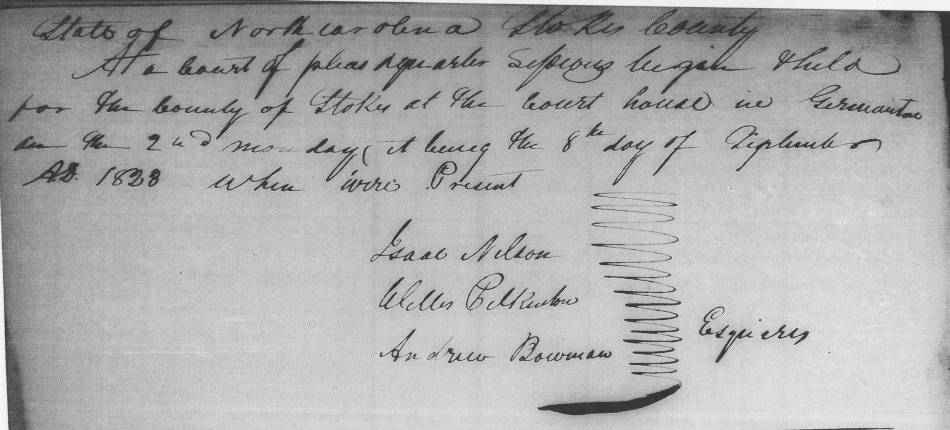 State of North carolina Stokes County
At a Court of pleas & quarter Sessions began & held
for the County of Stokes at the Court house in Germanton
on the 2nd monday, it being the 8th day of September
AD. 1823 When were Present
Isaac Nelson
Willis Pilkenton
Andrew Bowman
Esquires